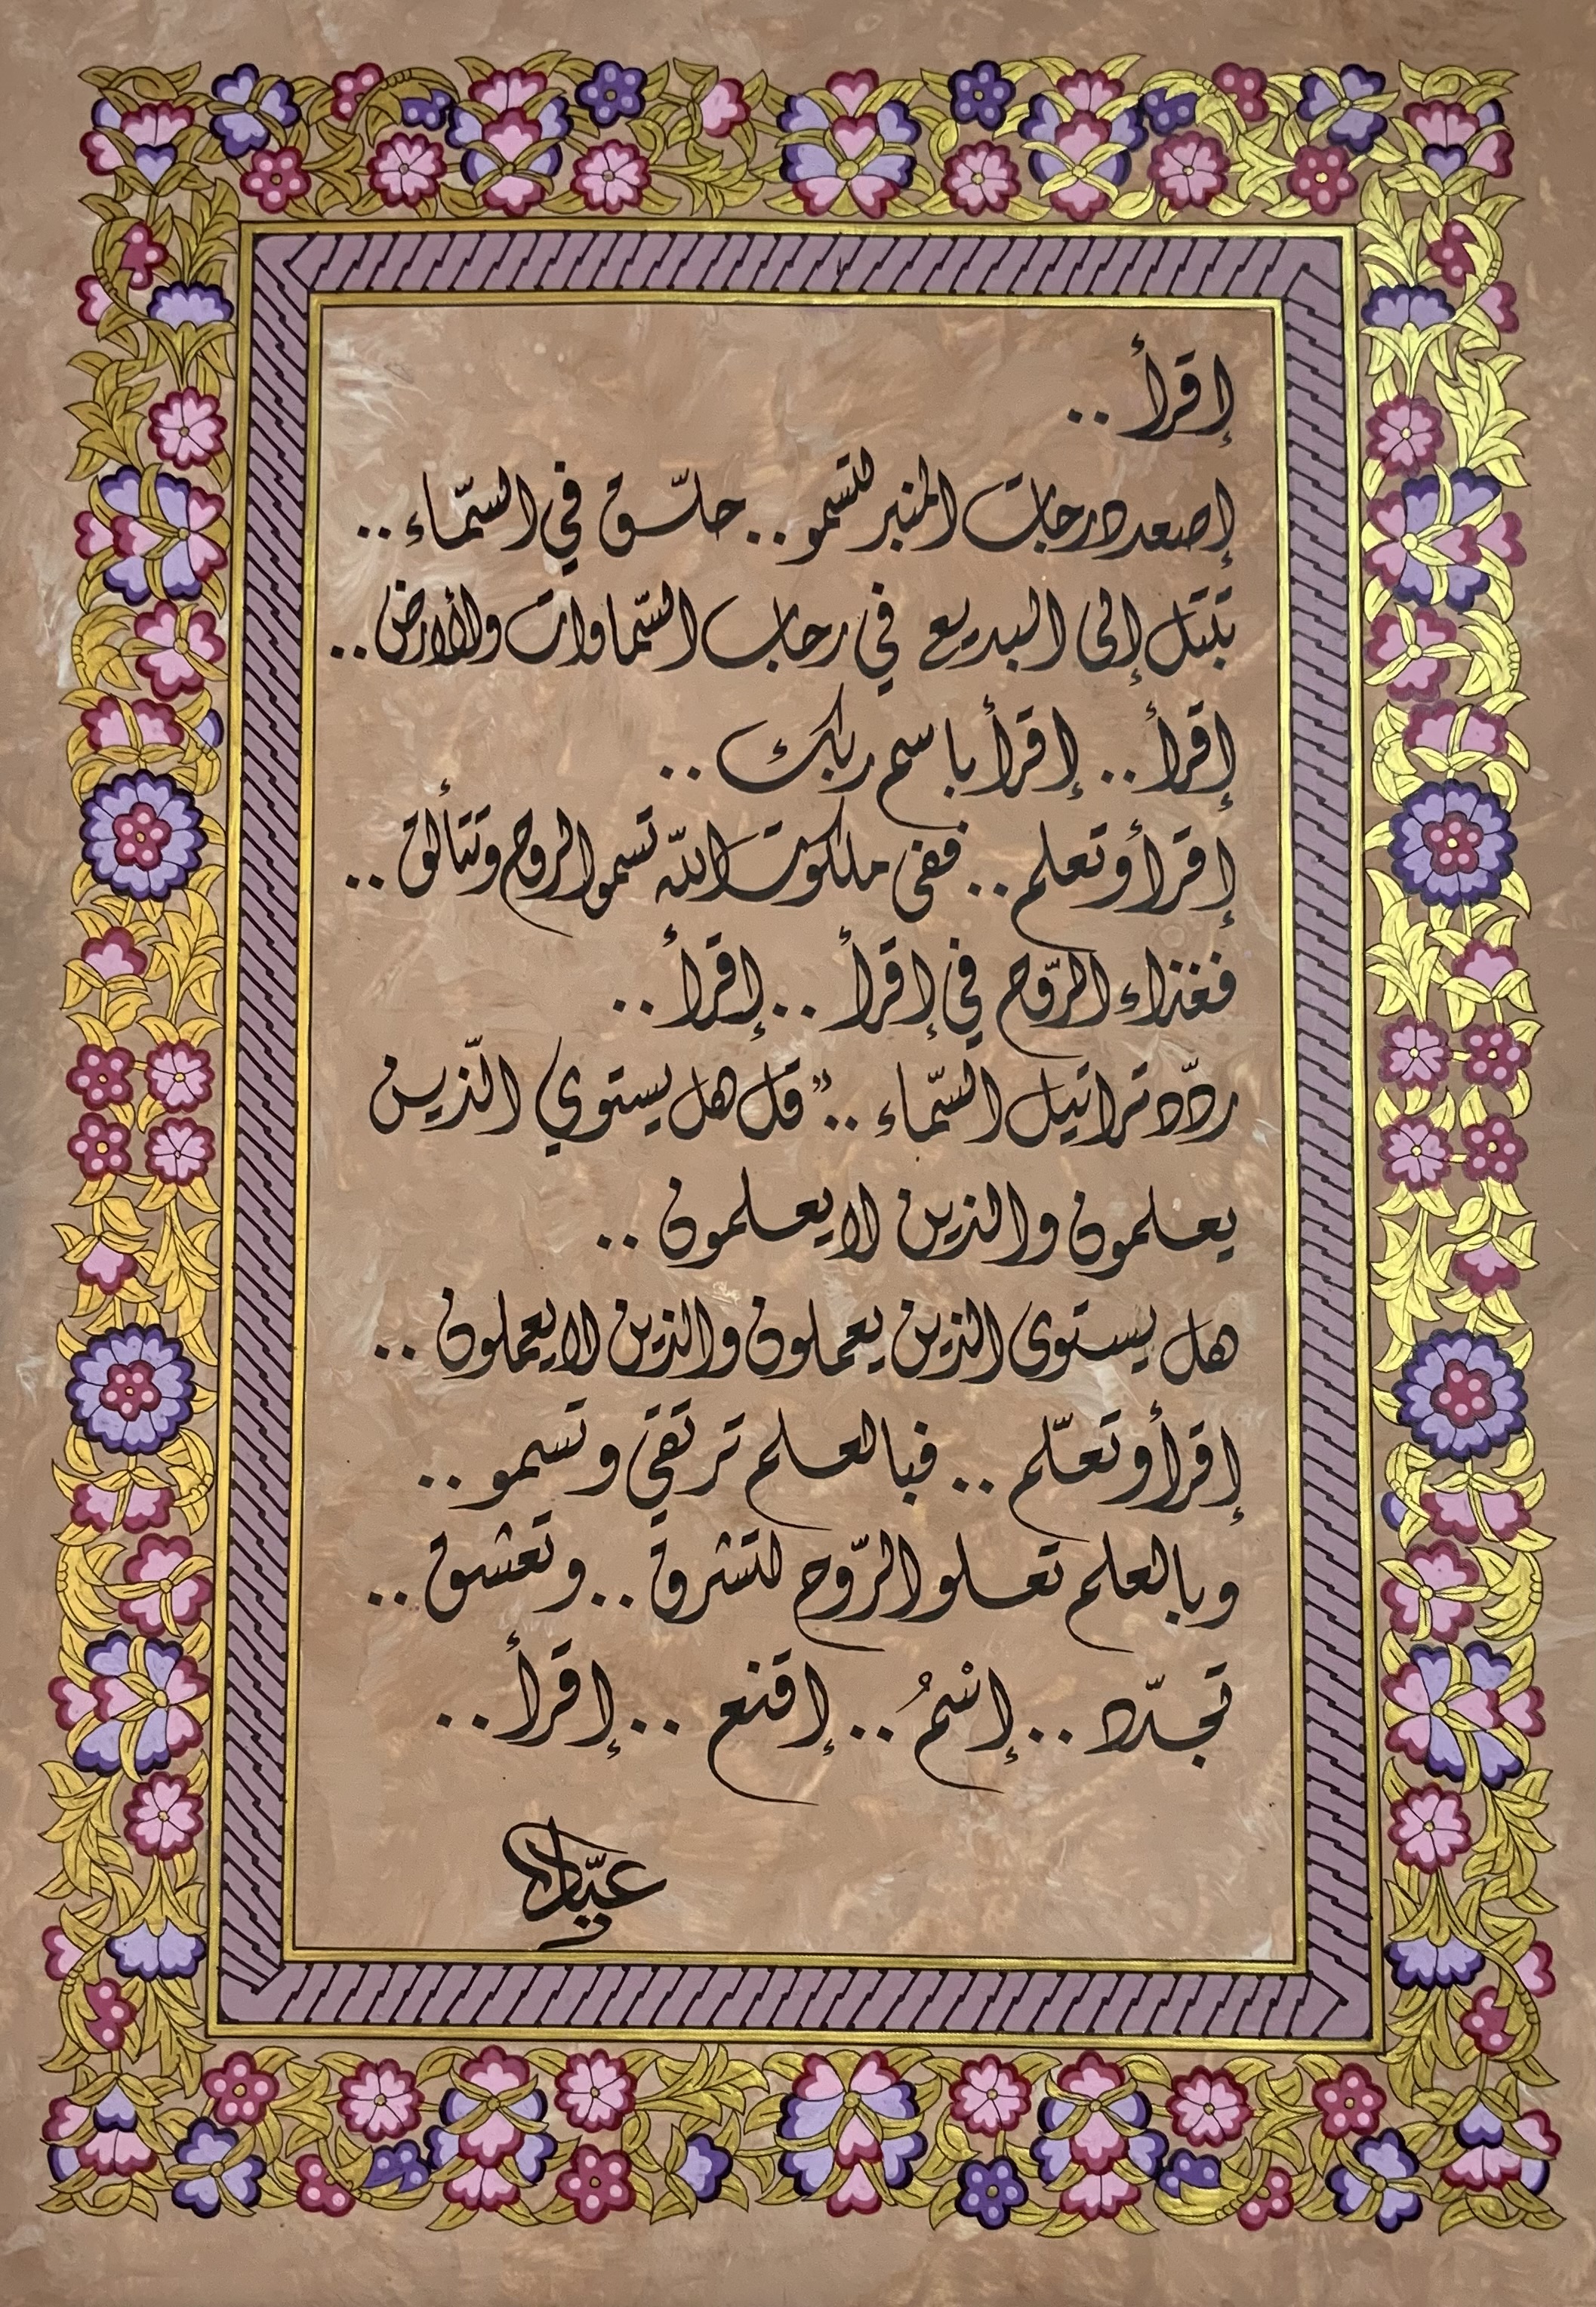 إقرأ ..
إصعد درجات المنبر لتسمو .. حلّق في السّماء ..
تبتل إلى البديع في رحاب السّماوات والأرض ..
إقرأ .. إقرأ باسم ربك ..
إقرأ وتعلم .. ففي ملكوت اللّه تسمو الروح وتتألق ..
فغذاء الرّوح في إقرأ .. إقرأ ..
ردّد تراتيل السّماء .. " قل هل يستوي الّذين
يعلمون والذين لا يعلمون ..
هل يستوى الذين يعملون والذين لا يعملون ..
إقرأ وتعلّم .. فبالعلم ترتقي وتسمو ..
وبالعلم تعلو الرّوح لتشرق .. وتعشق ..
تجدّد .. إسْمُ .. إقنع .. إقرأ ..